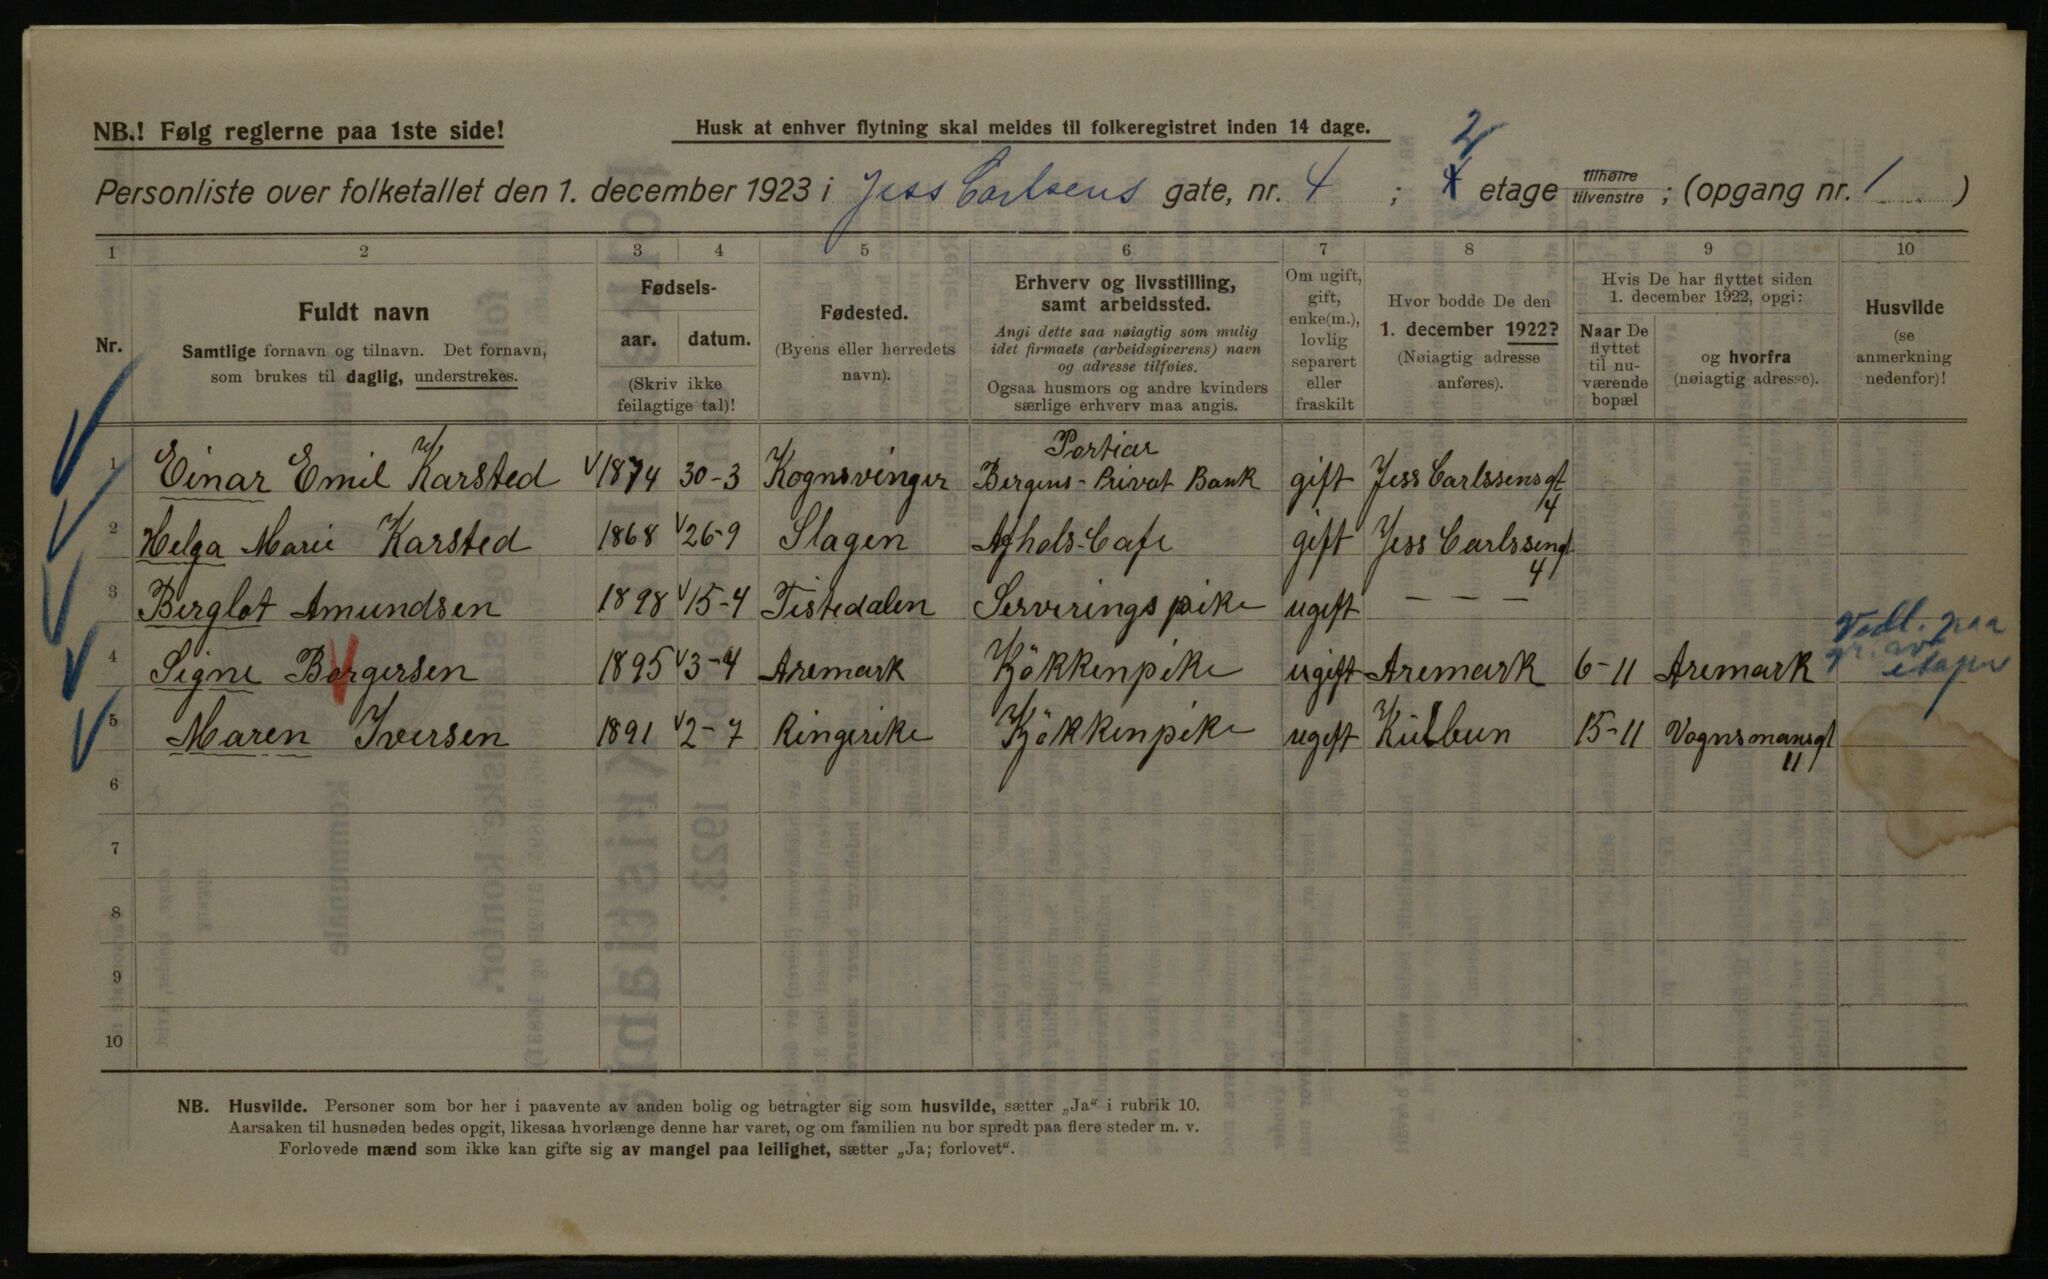 NB.! Følg reglerne paa 1ste side!
Husk at enhver flytning skal meldes til folkeregistret inden 14 dage.
2
Personliste over folketallet den 1. december 1923 i Jess Carlsens gate, nr. 4 ; 4 etage tilhøire tilvenstre ; (opgang nr. 1 )
1 2 3 4 5 6 7 8 9 10
Nr.
Fuldt navn
Samtlige fornavn og tilnavn. Det fornavn,
som brukes til daglig, understrekes.
Fødsels-
aar. datum.
(Skriv ikke
feilagtige tal)!
Fødested.
(Byens eller herredets
navn).
Erhverv og livsstilling,
samt arbeidssted.
Angi dette saa nøiagtig som mulig
idet firmaets (arbeidsgiverens) navn
og adresse tilføies.
Ogsaa husmors og andre kvinders
særlige erhverv maa angis.
Om ugift,
gift,
enke(m.),
lovlig
separert
eller
fraskilt
Hvor bodde De den
1. december 1922?
(Nøiagtig adresse
anføres).
Hvis De har flyttet siden
1. december 1922, opgi:
Naar De
flyttet
til nu-
værende
bopæl
og hvorfra
(nøiagtig adresse).
Husvilde
(se
anmerkning
nedenfor)!
Portier
1 Einar Emil Karsted 1874 30-3 Kognsvinger Bergens-Privat Bank gift Jess Carlssensgt
4
2 Helga Marie Karsted 1868 26-9 Slagen Afhols-Cafe gift Jess Carlssengt
4
3 Berglot Amundsen 1898 15-4 Tistedalen Serveringspike ugift – – –
4 Signe Borgersen 1895 3-4 Aremark Kökkenpike ugift Aremark 6-11 Aremark
paa
etager
5 Maren Iversen 1891 2-7 Ringerike Kökkenpike ugift 15-11 Vognsmansgt
11
6
7
8
9
10
NB. Husvilde. Personer som bor her i paavente av anden bolig og betragter sig som husvilde, sætter „Ja“ i rubrik 10.
Aarsaken til husnøden bedes opgit, likesaa hvorlænge denne har varet, og om familien nu bor spredt paa flere steder m. v.
Forlovede mænd som ikke kan gifte sig av mangel paa leilighet, sætter „Ja; forlovet“.